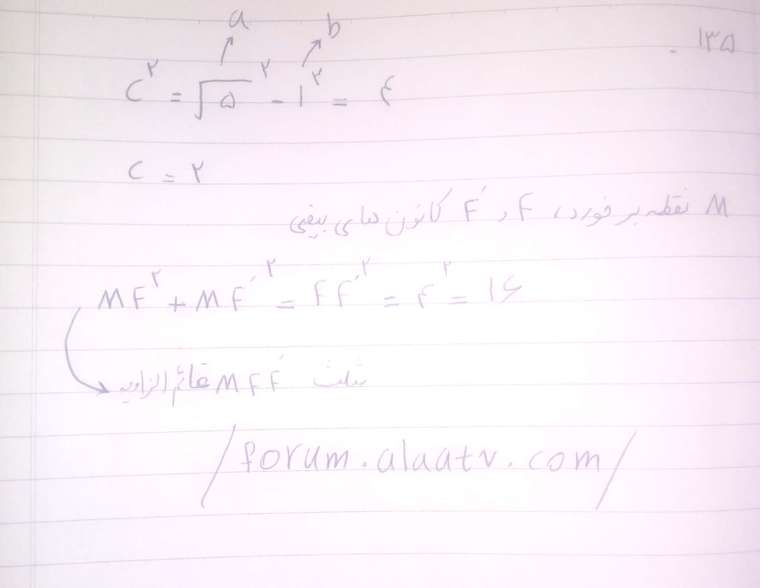 ۱۳۵ -
a b
C² = √۵² - ۱² = ۴
C = ۲
M نقطه برخورد، F و F' کانون های بیضی
MF² + MF'² = FF'² = ۴² = ۱۶
مثلث MFF' قائم الزاویه
/forum.alaatv.com/